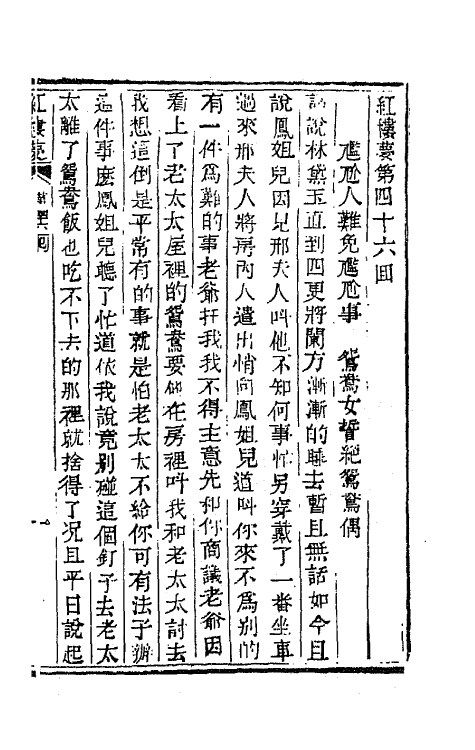 紅樓夢第四十六回
尷尬人難免尷尬事　鴛鴦女誓絕鴛鴦偶
話說林黛玉直到四更將闌方漸漸的睡去暫且無話如今且
說鳳姐兒因見邢夫人叫他不知何事忙另穿戴了一番坐車
過來邢夫人將房內人遣出悄向鳳姐兒道叫你來不爲別的
有一件爲難的事老爺托我我不得主意先和你商議老爺因
看上了老太太屋裡的鴛鴦要他在房裡叫我和老太太討去
我想這倒是平常有的事就是怕老太太不給你可有法子辦
這件事麽鳳姐兒聽了忙道依我說竟別碰這個釘子去老太
太離了鴛鴦飯也吃不下去的那裡就捨得了况且平日說起
紅樓夢